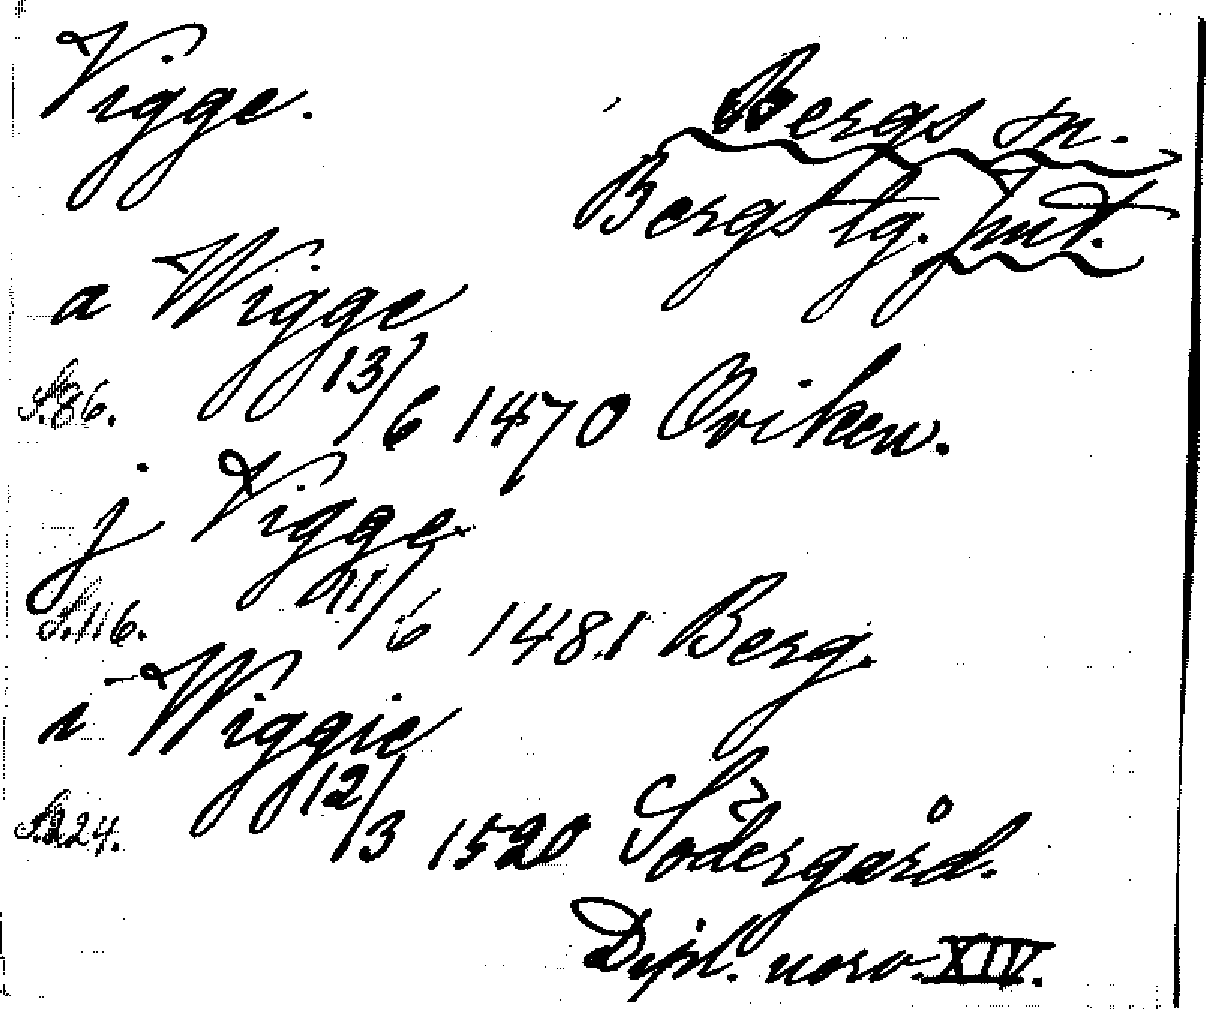 Vigge.
Bergs sn.
Bergs tg. Jmt.
a Wigge
S. 86. 13/6 1470 Oviken.
j Vigge
S. 116. 11/6 1481 Berg.
i Wiggie
S. 224. 12/3 1520 Södergård.
Dipl. norv. XIV.